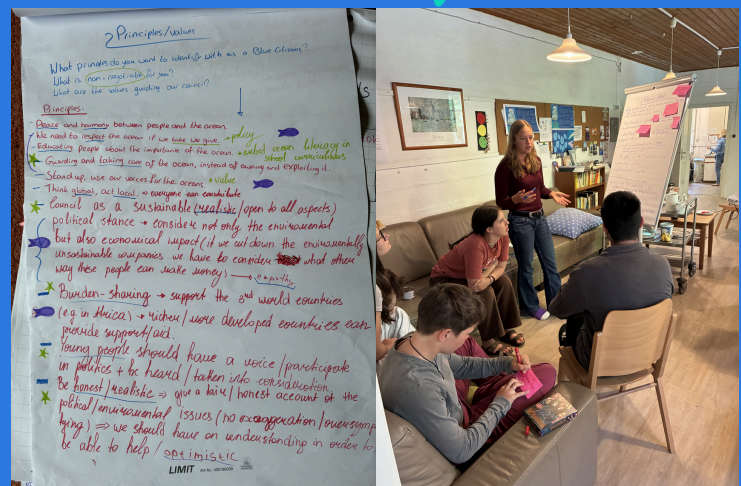 Principles/values
What prinples do you want to identify with as a Blue Citizens?
What is non-negotiable for you?
What are the values guiding our council?
Principles:
- Peace and harmony between people and the ocean.
- We need to respect the ocean if we take we give. → policy
- Educating people about the importance of the ocean. → embed ocean literacy in school curriculums
- Guarding and taking care of the ocean, instead of owning and exploiting it.
- Stand up, use our voices for the oceans → value
- Think global, act local. → everyone can contribute
Council as a sustainable (realistic/open to all aspects)
political stance → consider not only the enviromental
but also economical impact (if we cut down the enviromentally
unsustainable companies we have to consider what other
way these people can make money) → empathy
Burden-sharing → support the 3rd world countries
(e.g. in Africa) → richer/more developed countries can
provide support/aid.
Young people should have a voice/participate
in politics + be heard/taken into consideration
Be honest/realistic ⇒ give a fair/honest account of the
political/enviromental issues (no exaggeration/oversymp
lying) ⇒ we should have an understanding in order to
be able to help/optimistic
LIMIT